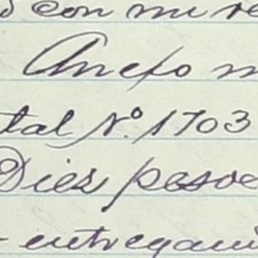 con mi re
Anexo n
tal Nº. 1703
Diez pesos
entregami